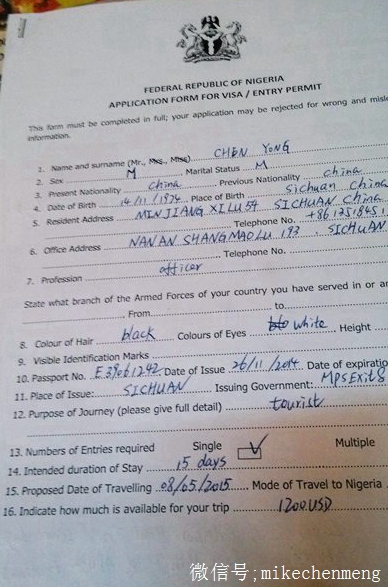 FEDERAL REPUBLIC OF NIGERIA
APPLICATION FORM FOR VISA / ENTRY PERMIT
This form must be completed in full; your application may be rejected for wrong and misle
information.
1. Name and surname (Mr., Mrs., Miss) CHEN YONG
2. Sex M Marital Status M
3. Present Nationality China Previous Nationality China
4. Date of Birth 14/11/1974 Place of Birth Sichuan China
5. Resident Address MINJIANG XI LU 54 SICHUAN China
Telephone No. +86 1351845
6. Office Address NANAN SHANGMAO LU 193 . SICHUAN
Telephone No.
7. Profession officer
State what branch of the Armed Forces of your country you have served in or ar
From to
8. Colour of Hair black Colours of Eyes white Height
9. Visible Identification Marks
10. Passport No. E39061242 Date of Issue 26/11/2014 Date of expiration
11. Place of Issue: SICHUAN Issuing Government: MPS Exit &
12. Purpose of Journey (please give full detail) tourist
13. Numbers of Entries required Single Multiple
14. Intended duration of Stay 15 days
15. Proposed Date of Travelling 08/05/2015 Mode of Travel to Nigeria
16. Indicate how much is available for your trip 1200USD
微信号;mikechenmeng